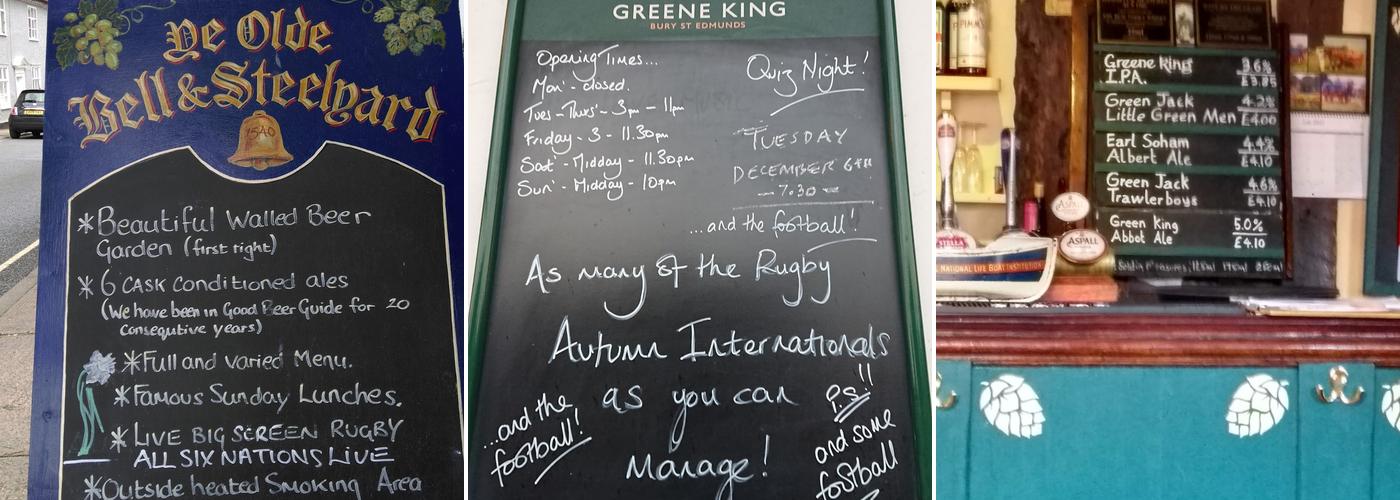 Ye Olde
Bell & Steelyard
1540
*Beautiful Walled Beer
Garden (first right)
*6 CASK conditioned ales
(We have been in Good Beer Guide for 20
consequtive years)
*Full and varied Menu.
*Famous Sunday Lunches.
*LIVE BIG SCREEN RUGBY
ALL SIX NATIONS LIVE
*Outside heated Smoking Area
GREENE KING
BURY ST EDMUNDS
Opening Times...
Mon' - closed.
Tues - Thurs' - 3pm - 11pm
Friday - 3 - 11.30pm
Sat' - Midday - 11.30pm
Sun' - Midday - 10pm
Quiz Night!
TUESDAY
DECEMBER 6TH
- 7.30 -
...and the football!
As many of the Rugby
Autumn Internationals
as you can
Manage!
...and the
football!
P.S!!
and some
football
PIMM'S
Greene King 3.6%
I.P.A. £3.85
Green Jack 4.2%
Little Green Men £4.00
Earl Soham 4.4%
Albert Ale £4.10
Green Jack 4.6%
Trawlerboys £4.10
Green King 5.0%
Abbot Ale £4.10
125ml 175ml 250ml
ASPALL
ASPALL
STELLA
NATIONAL LIFE BOAT INSTITUTION